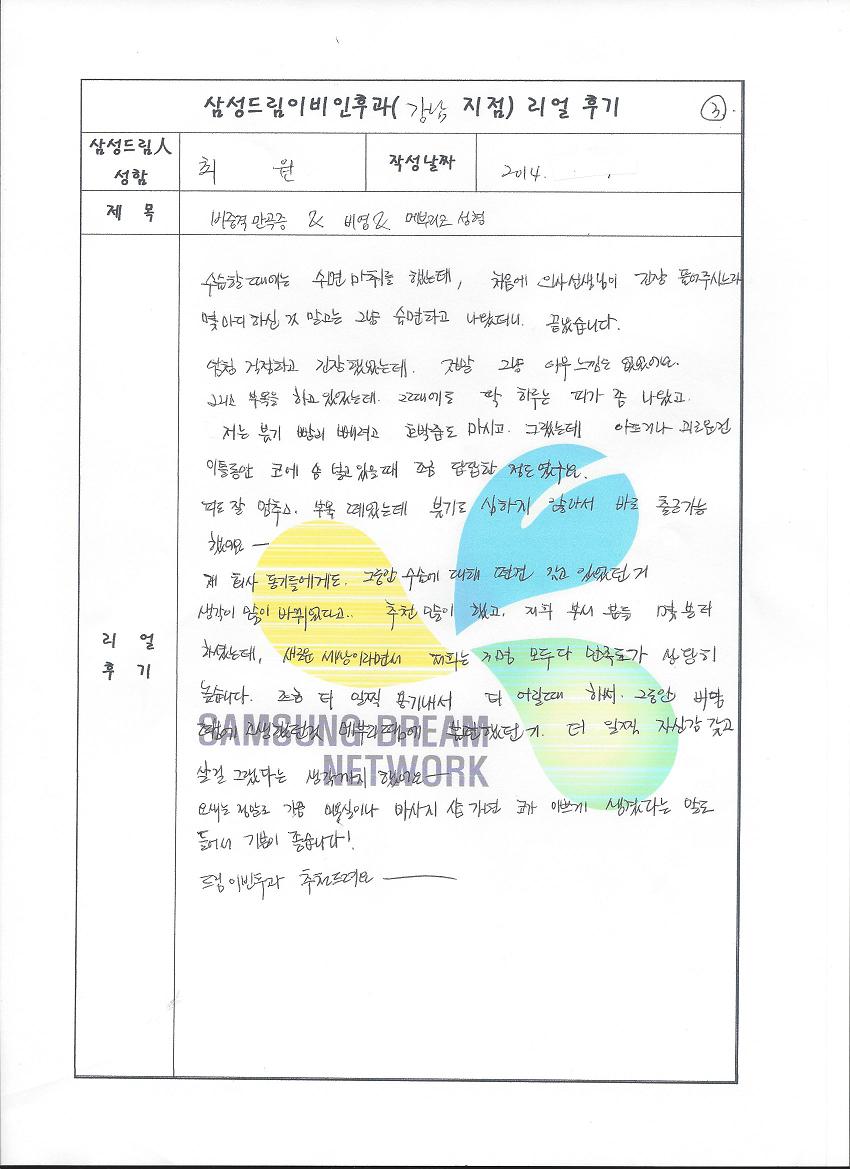 삼성드림이비인후과( 강남 지점) 리얼 후기 ③.
삼성드림人 성함
최 원
작성날짜
2014.
제 목
비중격만곡증 & 비염 & 메부리코 성형
리 얼 후 기
수술할 때에는 수면 마취를 했는데, 처음에 의사선생님이 긴장 풀어주시느라
몇 마디 하신 것 말고는 그냥 숙면하고 나왔더니. 끝났습니다.
엄청 걱정하고 긴장했었는데. 정말 그냥 아무 느낌도 없었어요.
그리고 부목을 하고 있었는데. 그때에도 딱 하루는 피가 좀 나왔고.
저는 붓기 빨리 빼려고 호박즙도 마시고. 그랬는데 아프거나 괴로운건
이틀동안 코에 솜 넣고 있을때 조금 답답한 정도였구요.
피도 잘 멈추고. 부목 떼었는데 붓기도 심하지 않아서 바로 출근가능
했어요 —
제 회사 동기들에게도. 그동안 수술에 대해 편견 갖고 있었던거
생각이 많이 바뀌었다고.. 추천 많이 했고, 저희 부서 분들 몇 분 더
하셨는데, 새로운 세상이라면서 저희는 명 모두다 만족도가 상당히
높습니다. 조금 더 일찍 용기내서 더 어릴때 해서. 그동안 비염
때문에 고생했던것 메부리 때문에 했던거. 더 일찍 자신감 갖고
살걸 그랬다는 생각까지 했어요 —
요새는 정말로 가끔 미용실이나 마사지 샵 가면 코가 이쁘게 생겼다는 말도
들어서 기분이 좋습니다!
드림이빈후과 추천드려요 —
SAMSUNG DREAM
NETWORK